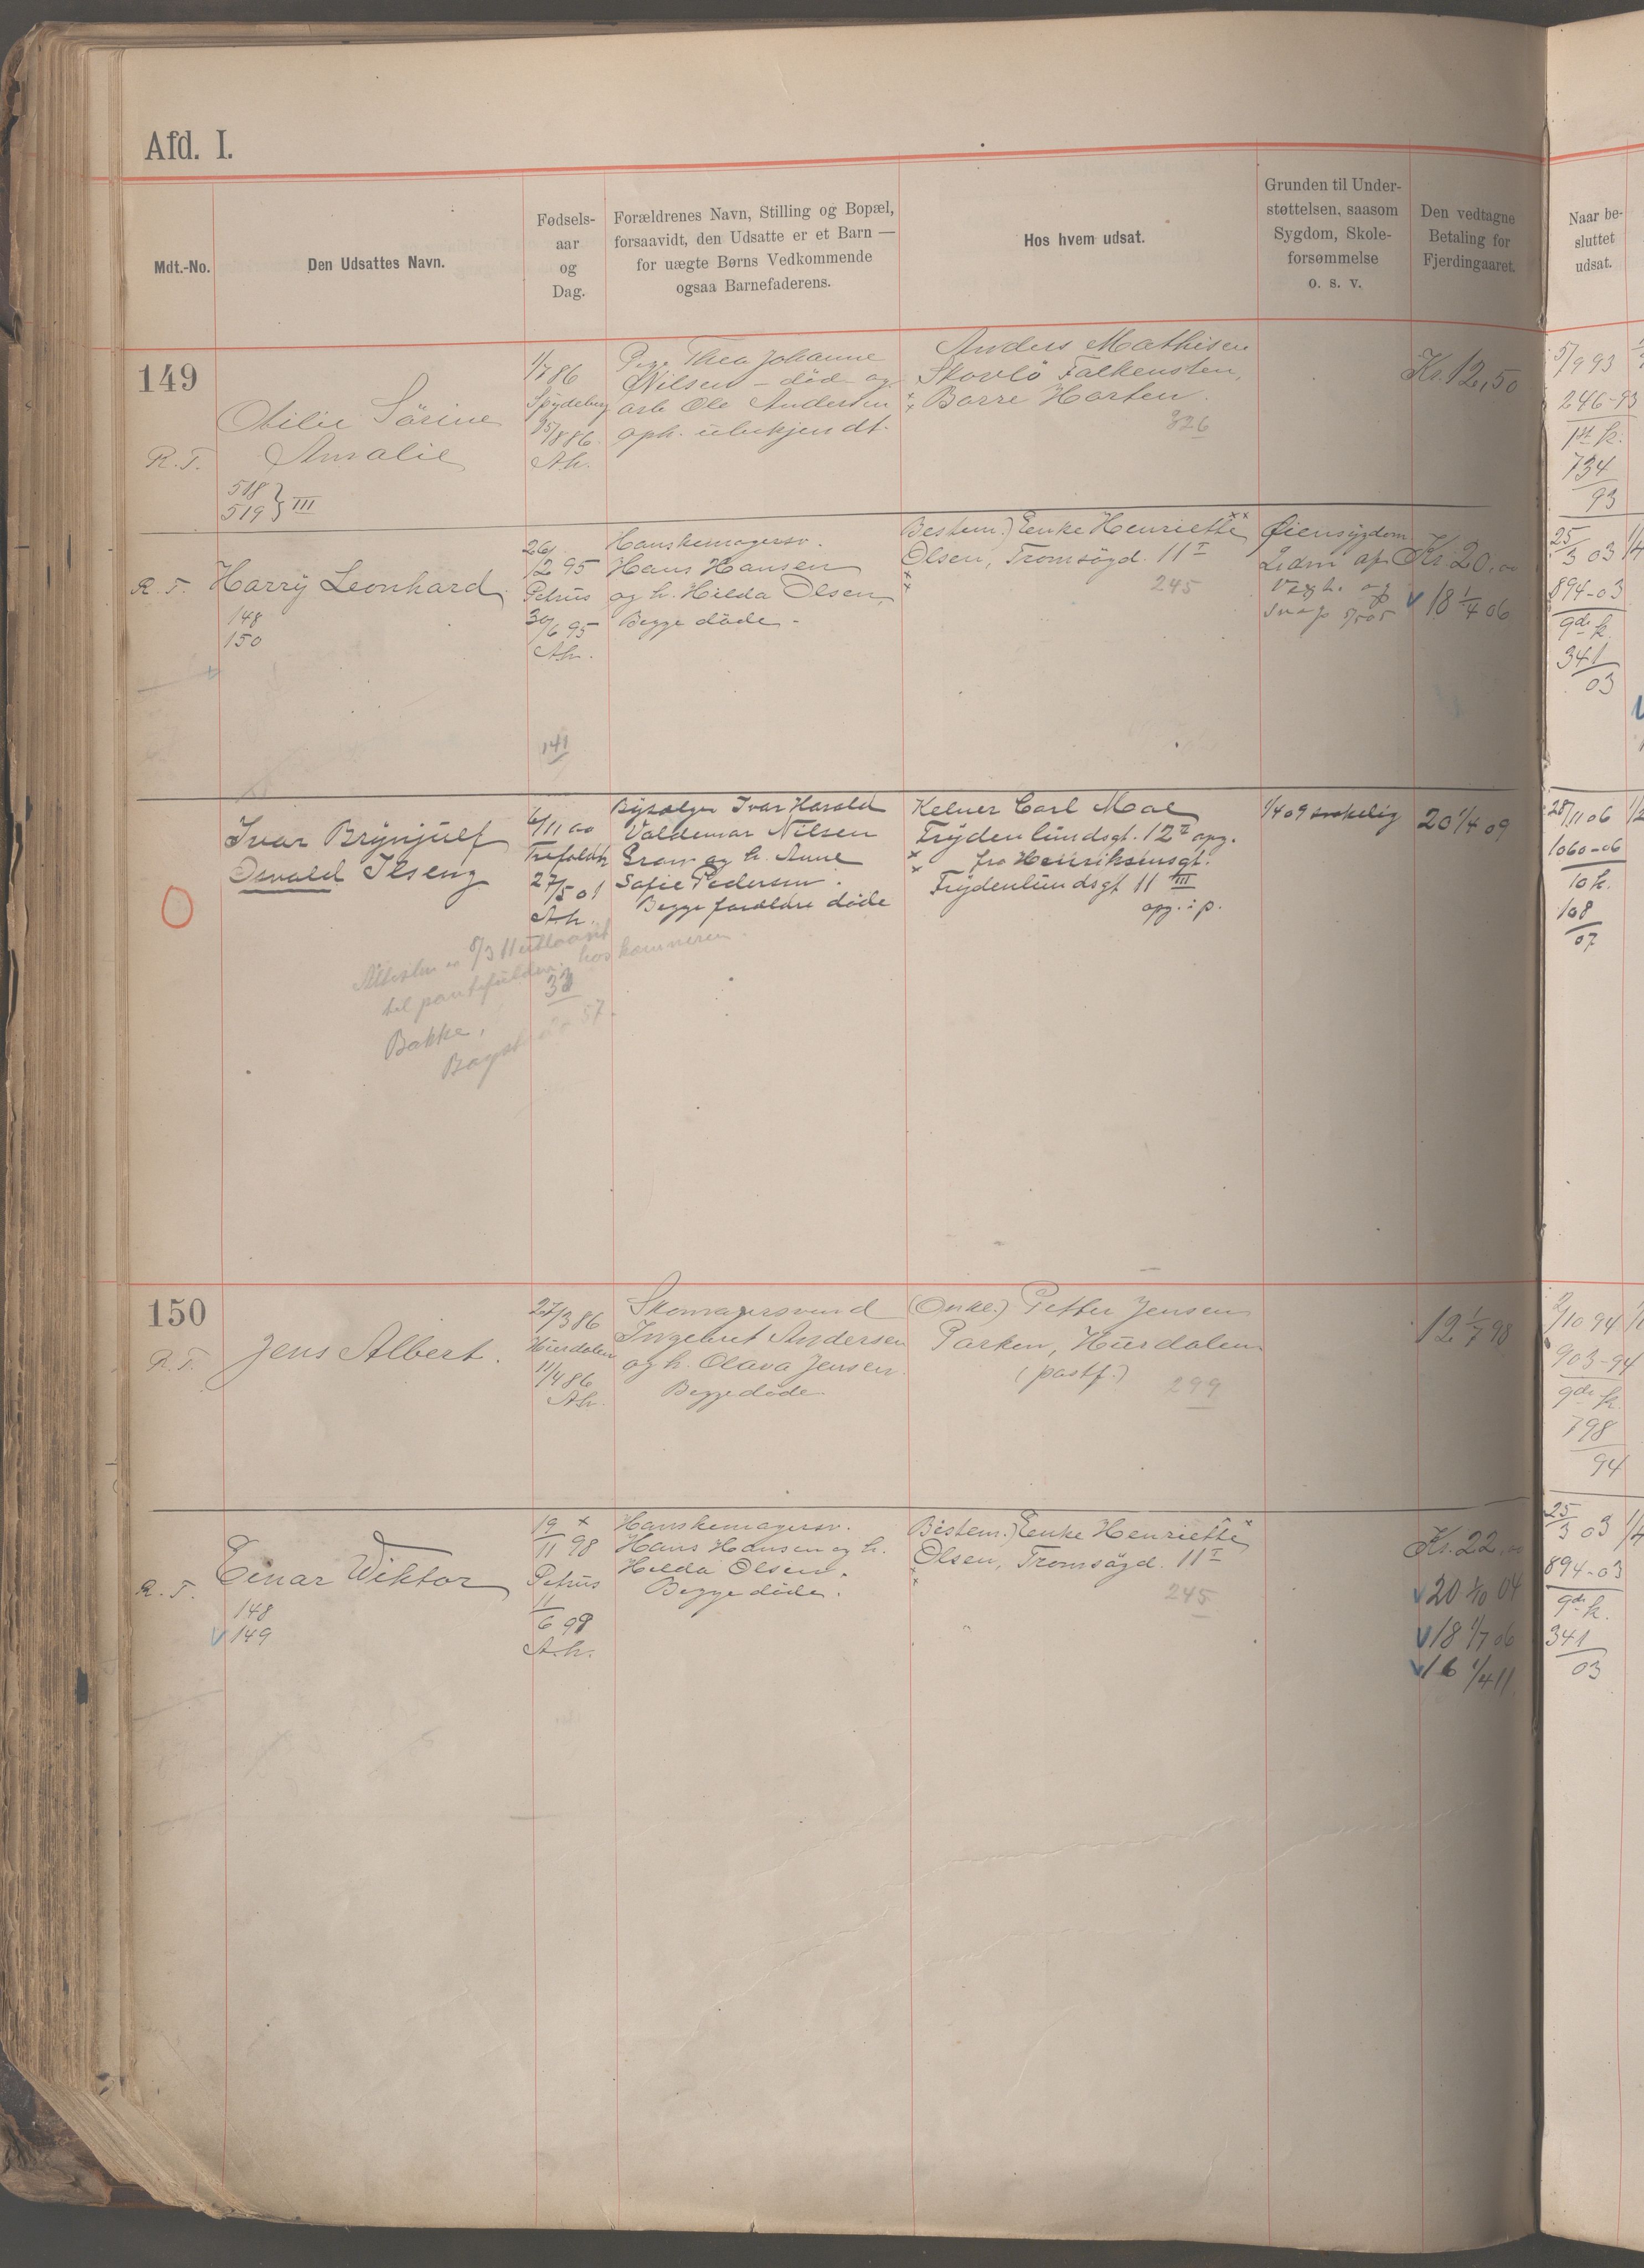 Afd. I.
Mdt.-No.
Den Udsattes Navn.
Fødsels-
aar
og
Dag.
Forældrenes Navn, Stilling og Bopæl,
forsaavidt, den Udsatte er et Barn —
for uægte Børns Vedkommende
ogsaa Barnefaderens.
Hos hvem udsat.
Grunden til Under-
støttelsen, saasom
Sygdom, Skole-
forsømmelse
o. s. v.
Den vedtagne
Betaling for
Fjerdingaaret.
Naar be-
sluttet
udsat.
149
R. T.
Otilie Sörine
Amalie
518
519 } III
1/7 86
Spydeberg
15/8 86.
A.h.
Pige Thea Johanne
Nilsen - död - og
arb Ole Andersen
oph. ubekjendt.
Anders Mathisen
Skovlö Falkensten,
Borre Horten.
826
Kr. 12,50
5/9 93
246-93
1ste k.
734
93
R. T. Harry Leonhard
148
150
26/12 95
Petrus
30/6 95
A.h.
Hanskemagersv.
Hans Hansen
og h. Hilda Olsen,
Begge döde -
141
Bestem.) Enke Henriette
Olsen, Tromsögd. 11 I
245
Øiensygdom
Kr. 20,00
18 1/4 06
25/3 03
894-03
9de k.
341
03
Ivar Brynjulf
Osvald Ilseng
6/11 00
Trefoldh
27/5 01
A.h.
Bysælger Ivar Harald
Valdemar Nilsen
Gran og h. Anne
Sofie Pedersen.
Begge forældre döde
Kelner Carl Moe
Frydenlundsgt. 12 I opg.
fra Henriksensgt.
Frydenlundsgt 11 III
opg. i p.
1/4 09
20 1/4 09
28/11 06
1060-06
10 k.
108
07
Attesten 8/3 11 udlaant
til hos kæmneren.
33
Bakke,
150
R. T.
Jens Albert.
27/3 86
Hurdalen
11/4 86
A.h.
Skomagersvend
Ingebret Andersen
og h. Olava Jensen.
Begge döde.
(Onkel.) Petter Jensen
Parken, Hurdalen
(postf.)
299
12 1/7 98
2/10 94
903-94
9de k.
798
94
R. T.
Einar Wiktor
148
149
19/11 98
Petrus
11/6 98
A.h.
Hanskemagersv.
Hans Hansen og h.
Hilda Olsen.
Begge döde.
Bestem.) Enke Henriette
Olsen, Tromsögd. 11 I
245
Kr. 22,00
20 1/10 04
18 1/7 06
16 1/4 11
25/3 03
894-03
9de k.
341
03